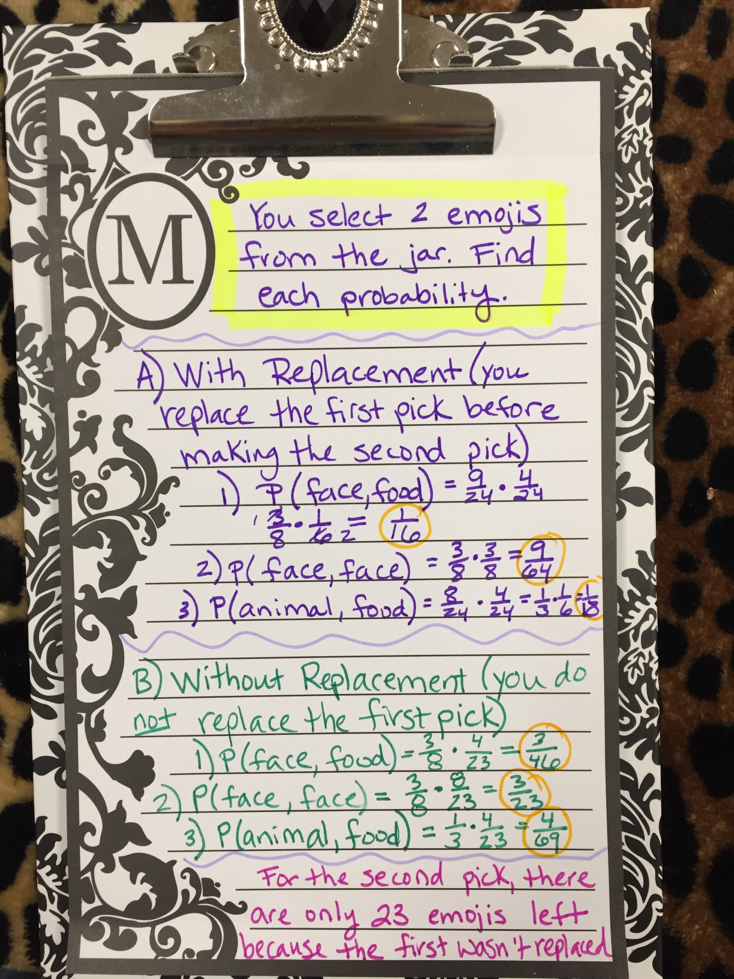 M
You select 2 emojis
from the jar. Find
each probability.
A) With Replacement (you
replace the first pick before
making the second pick)
1) P(face, food) = 9/24 · 4/24
3/8 · 1/6 2 = 1/16
2) P(face, face) = 3/8 · 3/8 = 9/64
3) P(animal, food) = 8/24 · 4/24 = 1/3 · 1/6 = 1/18
B) Without Replacement (you do
not replace the first pick)
1) P(face, food) = 3/8 · 4/23 = 3/46
2) P(face, face) = 3/8 · 8/23 = 3/23
3) P(animal, food) = 1/3 · 4/23 = 4/69
For the second pick, there
are only 23 emojis left
because the first wasn't replaced